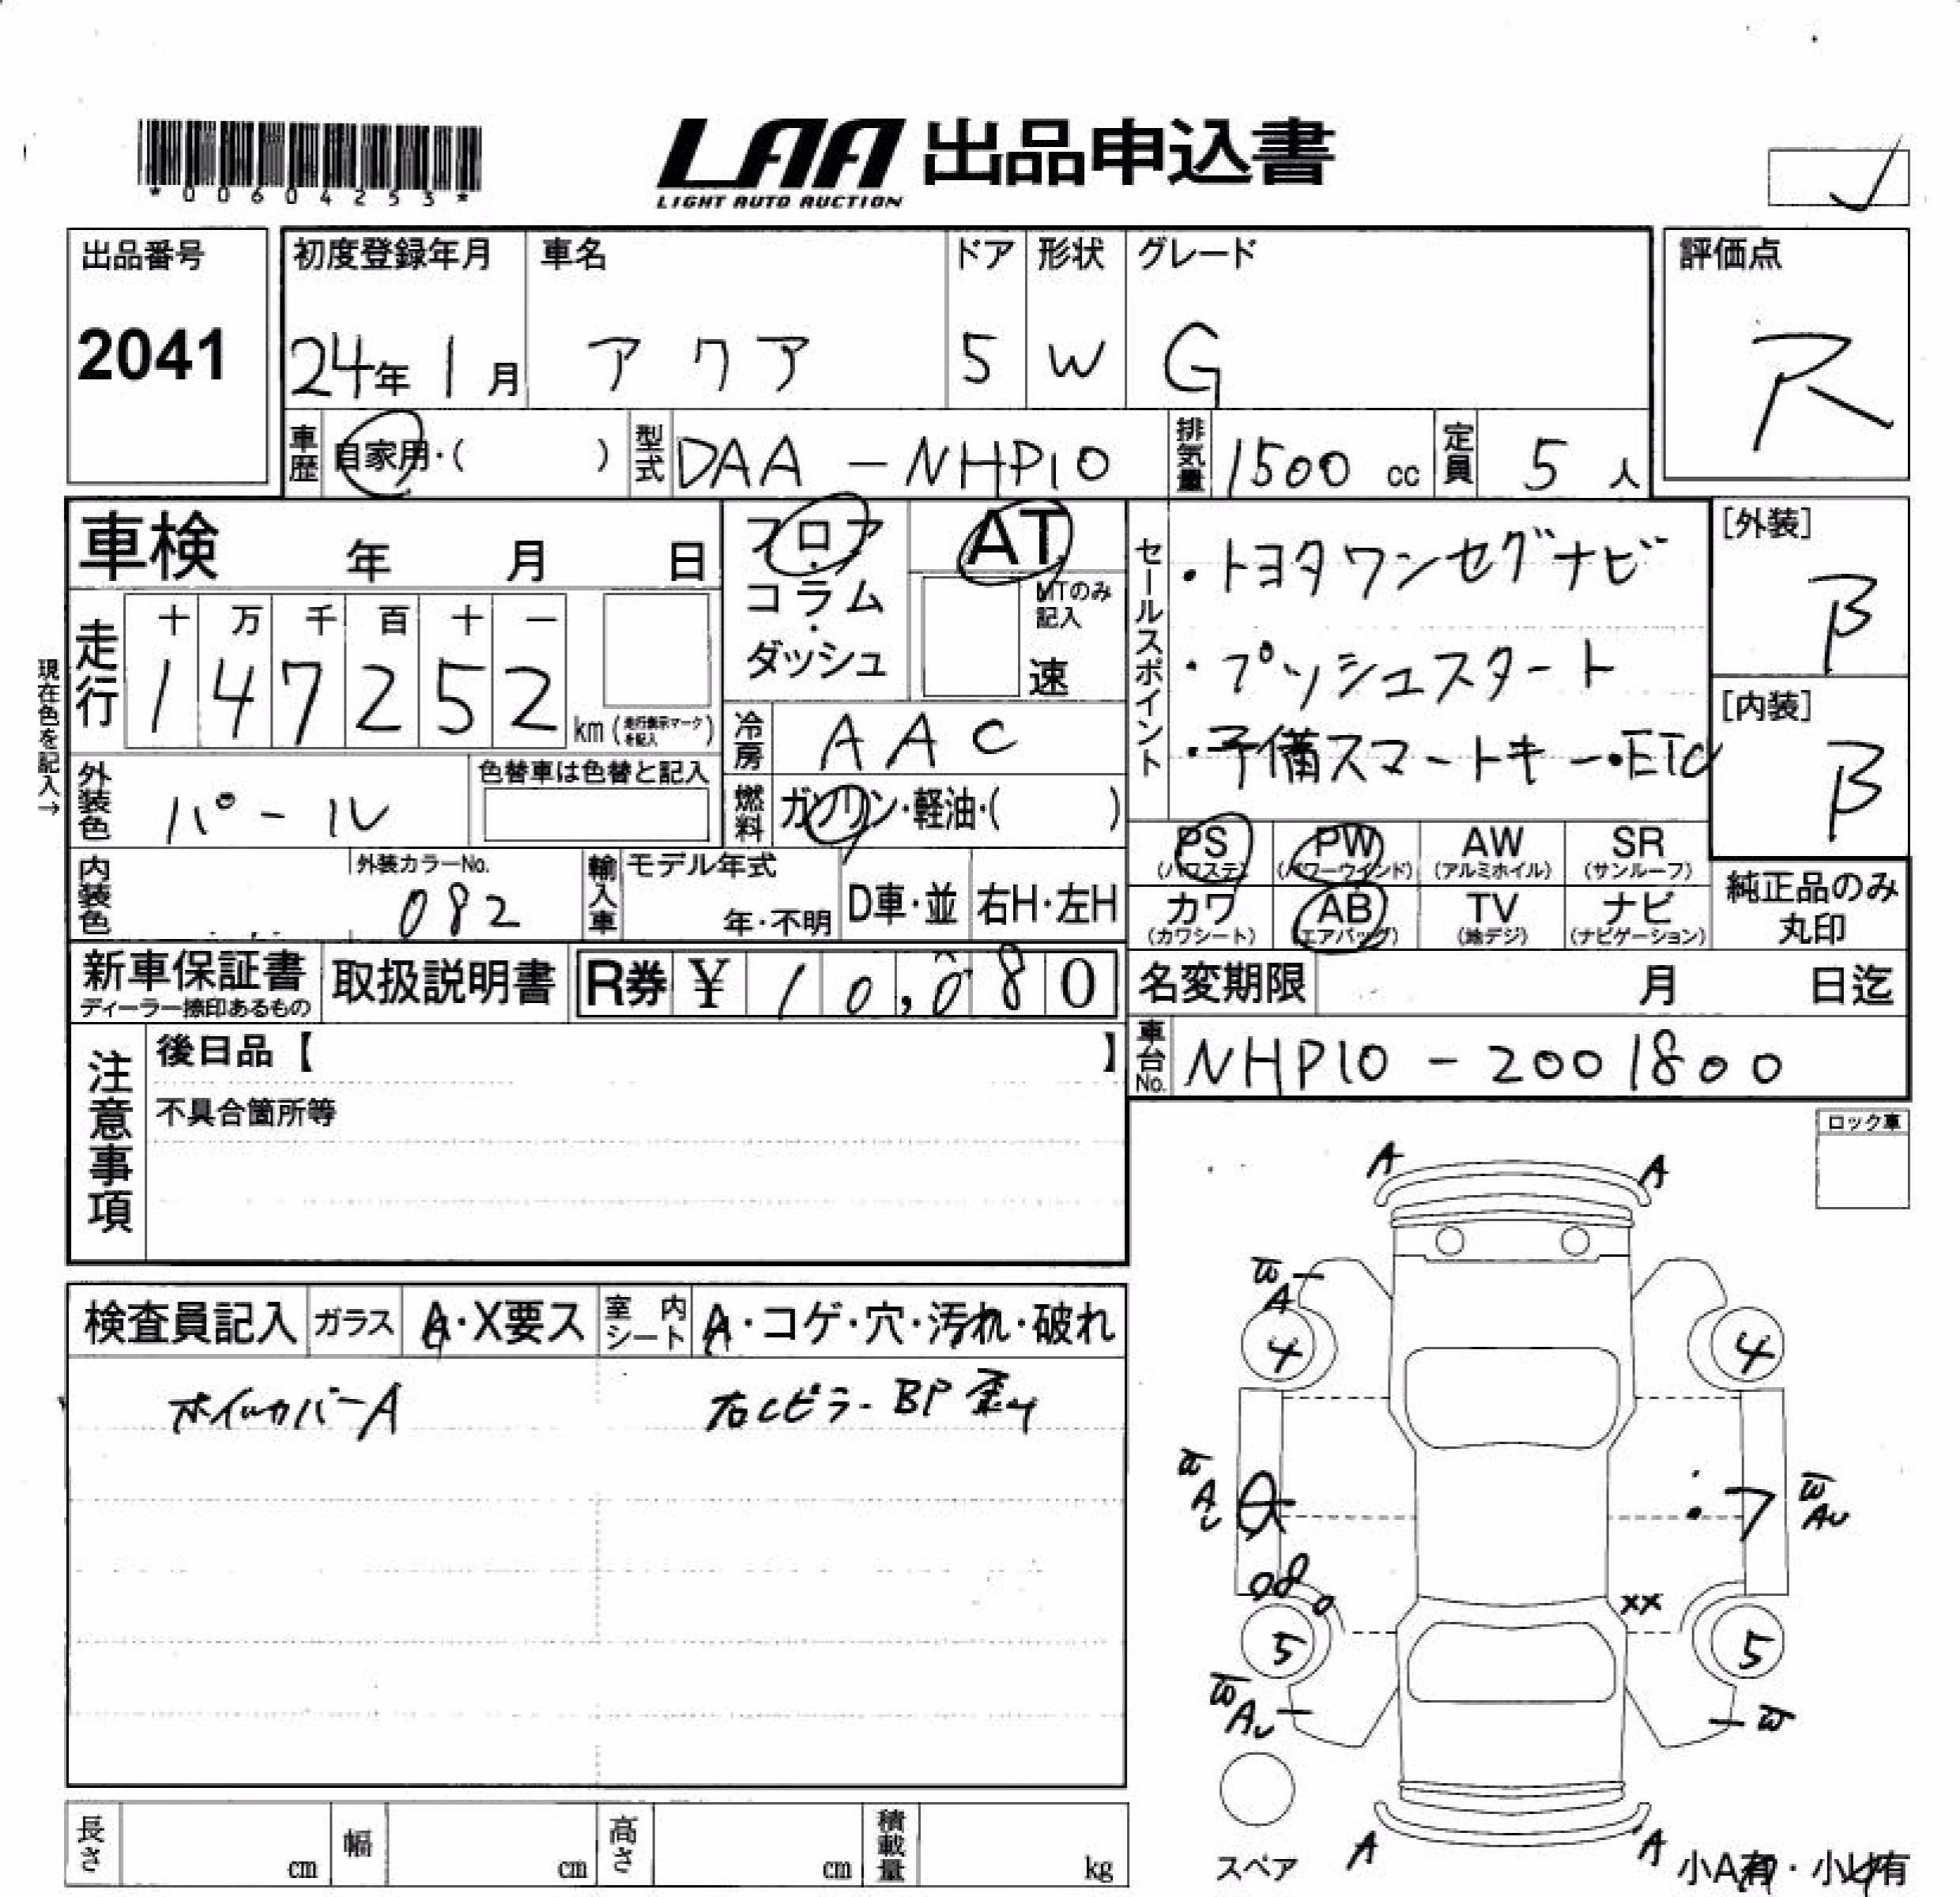 *00604253*
LAA 出品申込書
LIGHT AUTO AUCTION
出品番号
2041
初度登録年月
24年 1月
車名
アクア
ドア
5
形状
W
グレード
G
評価点
R
車歴 自家用・( )
型式 DAA-NHP10
排気量 1500 cc
定員 5 人
車検 年 月 日
フロア・コラム・ダッシュ
AT
MTのみ記入
速
セールスポイント
・トヨタワンセグナビ
・プッシュスタート
・予備スマートキー・ETC
[外装]
B
[内装]
B
現在色を記入→
走行
十 万 千 百 十 一
1 4 7 2 5 2
km (走行表示マークを記入)
冷房 AAC
外装色 パール
色替車は色替と記入
燃料 ガソリン・軽油・( )
PS (パワステ)
PW (パワーウインド)
AW (アルミホイル)
SR (サンルーフ)
カワ (カワシート)
AB (エアバッグ)
TV (地デジ)
ナビ (ナビゲーション)
純正品のみ丸印
内装色
外装カラーNo.
082
輸入車
モデル年式
年・不明
D車・並
右H・左H
新車保証書
ディーラー捺印あるもの
取扱説明書
R券 ¥ 10,080
名変期限 月 日迄
車台No. NHP10-2001800
注意事項
後日品【 】
不具合箇所等
ロック車
検査員記入
ガラス A・X要ス
室内シート A・コゲ・穴・汚れ・破れ
ホイルカバーA
右Cピラー BP 歪み
A A
W
A
4 4
W
A
U
W
AU
XX
5 5
W
AU
W
スペア
A A
小A有・小U有
長さ cm
幅 cm
高さ cm
積載量 kg